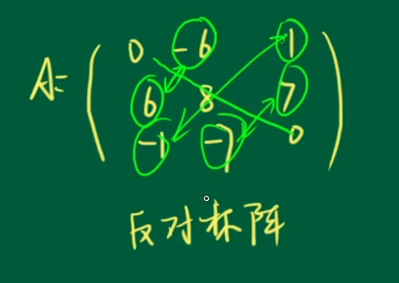 0 -6 1
A= 6 8 7
-1 -7 0
反对称阵